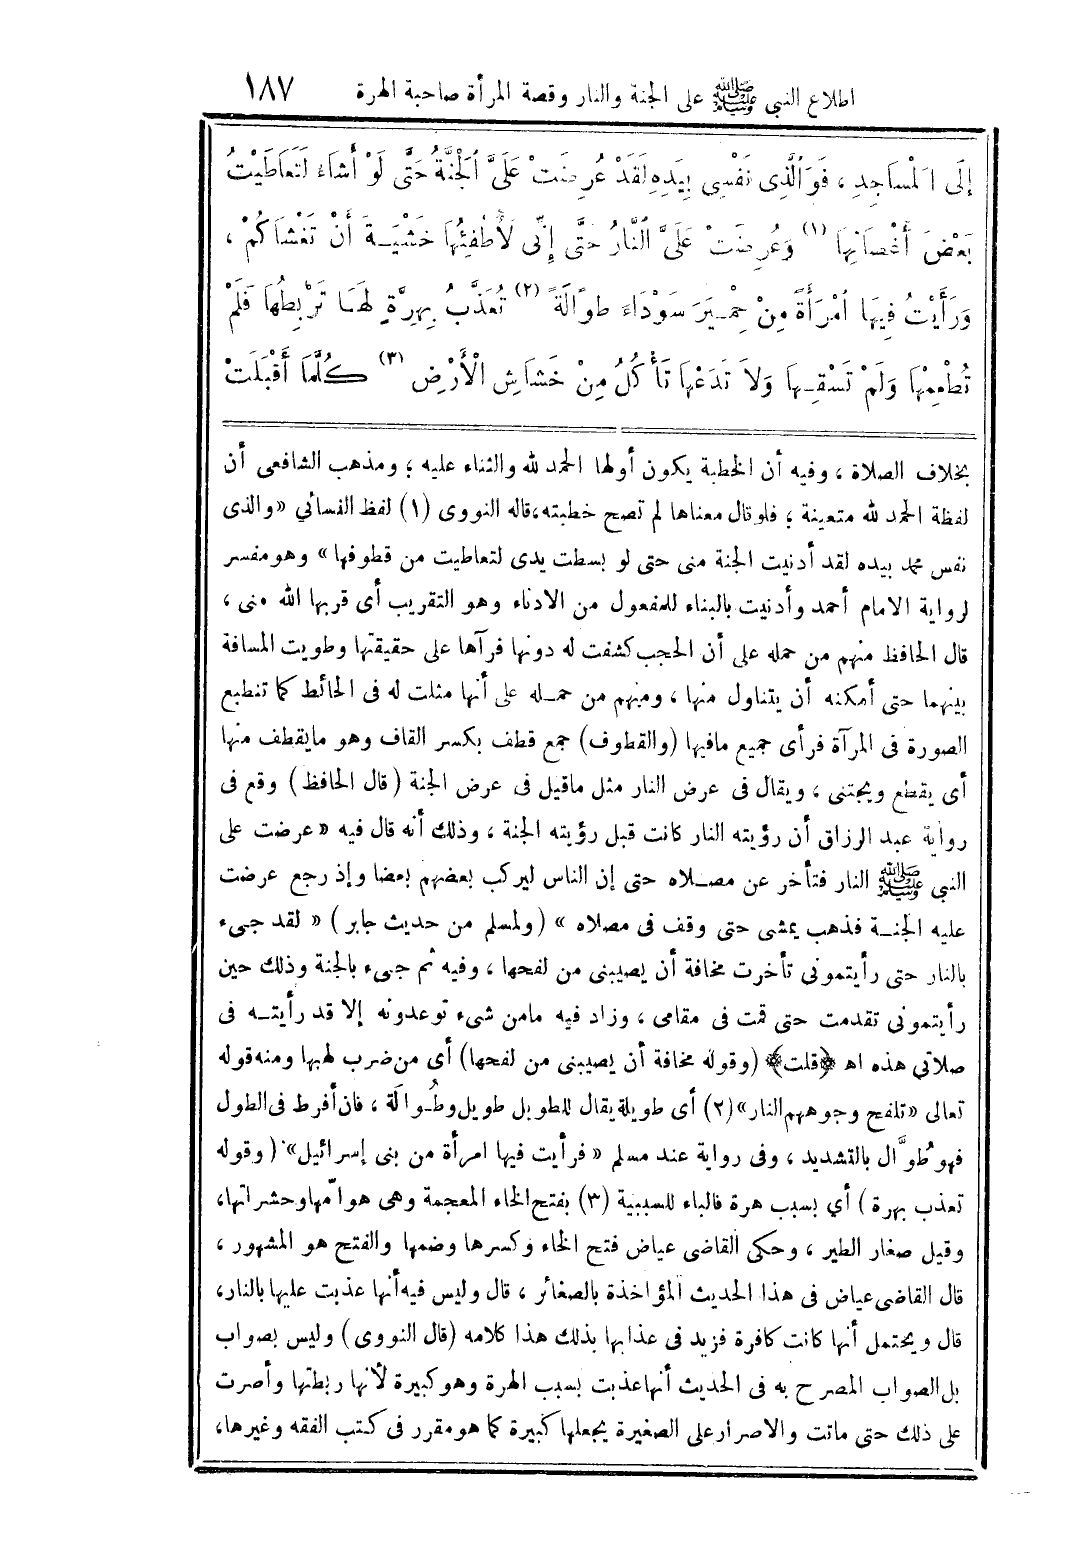 اطلاع النبي ﷺ على الجنة والنار وقصة المرأة صاحبة الهرة ١٨٧
إلَى الْمَسَاجِدِ ، فَوَالَّذِى نَفْسِى بِيَدِهِ لَقَدْ عُرِضَتْ عَلَىَّ الْجَنَّةُ حَتَّى لَوْ أَشَاءُ لَتَعَاطَيْتُ
بَعْضَ أَغْصَانِهَا (١) وَعُرِضَتْ عَلَىَّ النَّارُ حَتَّى إِنِّى لَأُطْفِئُهَا خَشْيَةَ أَنْ تَغْشَاكُمْ ،
وَرَأَيْتُ فِيهَا امْرَأَةً مِنْ حِمْيَرَ سَوْدَاءَ طُوَالَةً (٢) تُعَذَّبُ بِهِرَّةٍ لَهَا تَرْبِطُهَا فَلَمْ
تُطْعِمْهَا وَلَمْ تَسْقِهَا وَلَا تَدَعْهَا تَأْكُلُ مِنْ خَشَاشِ الْأَرْضِ (٣) كُلَّمَا أَقْبَلَتْ
بخلاف الصلاة ، وفيه أن الخطبة يكون أولها الحمد لله والثناء عليه ؛ ومذهب الشافعى أن
لفظة الحمد لله متعينة ؛ فلو قال معناها لم تصح خطبته، قاله النووى (١) لفظ النسائي «والذى
نفس محمد بيده لقد أدنيت الجنة منى حتى لو بسطت يدى لتعاطيت من قطوفها» وهو مفسر
لرواية الامام أحمد وأدنيت بالبناء للمفعول من الادناء وهو التقريب أى قربها الله منى ،
قال الحافظ منهم من حمله على أن الحجب كشفت له دونها فرآها على حقيقتها وطويت المسافة
بينهما حتى أمكنه أن يتناول منها ، ومنهم من حمله على أنها مثلت له فى الحائط كما تنطبع
الصورة فى المرآة فرأى جميع مافيها (والقطوف) جمع قطف بكسر القاف وهو مايقطف منها
أى يقطع ويجتنى ، ويقال فى عرض النار مثل ماقيل فى عرض الجنة (قال الحافظ) وقع فى
رواية عبد الرزاق أن رؤيته النار كانت قبل رؤيته الجنة ، وذلك أنه قال فيه «عرضت على
النبي ﷺ النار فتأخر عن مصلاه حتى إن الناس ليركب بعضهم بعضا وإذ رجع عرضت
عليه الجنة فذهب يمشى حتى وقف فى مصلاه » (ولمسلم من حديث جابر) « لقد جىء
بالنار حتى رأيتمونى تأخرت مخافة أن يصيبنى من لفحها ، وفيه ثم جىء بالجنة وذلك حين
رأيتمونى تقدمت حتى قمت فى مقامى ، وزاد فيه مامن شىء توعدونه إلا قد رأيته فى
صلاتي هذه اه ﴿قلت﴾ (وقوله مخافة أن يصيبنى من لفحها) أى من ضرب لهبها ومنه قوله
تعالى «تلفح وجوههم النار» (٢) أى طويلة يقال للطويل طويل وطُوالة ، فان أفرط فى الطول
فهو طُوَّال بالتشديد ، وفى رواية عند مسلم « فرأيت فيها امرأة من بنى إسرائيل» (وقوله
تعذب بهرة) أي بسبب هرة فالباء للسببية (٣) بفتح الخاء المعجمة وهى هوامّها وحشراتها،
وقيل صغار الطير ، وحكى القاضى عياض فتح الخاء وكسرها وضمها والفتح هو المشهور ،
قال القاضى عياض فى هذا الحديث المؤاخذة بالصغائر ، قال وليس فيه أنها عذبت عليها بالنار،
قال ويحتمل أنها كانت كافرة فزيد فى عذابها بذلك هذا كلامه (قال النووى) وليس بصواب
بل الصواب المصرح به فى الحديث أنها عذبت بسبب الهرة وهو كبيرة لأنها ربطتها وأصرت
على ذلك حتى ماتت والاصرار على الصغيرة يجعلها كبيرة كما هو مقرر فى كتب الفقه وغيرها،